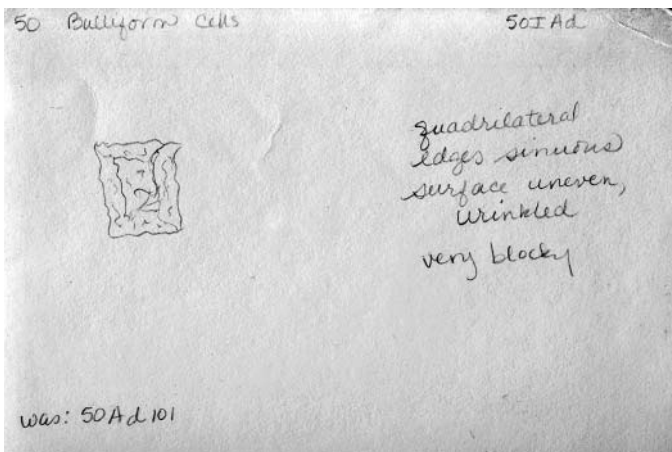 50 Bulliform Cells
50IAd
quadrilateral
edges sinuous
surface uneven,
wrinkled
very blocky
was: 50Ad101